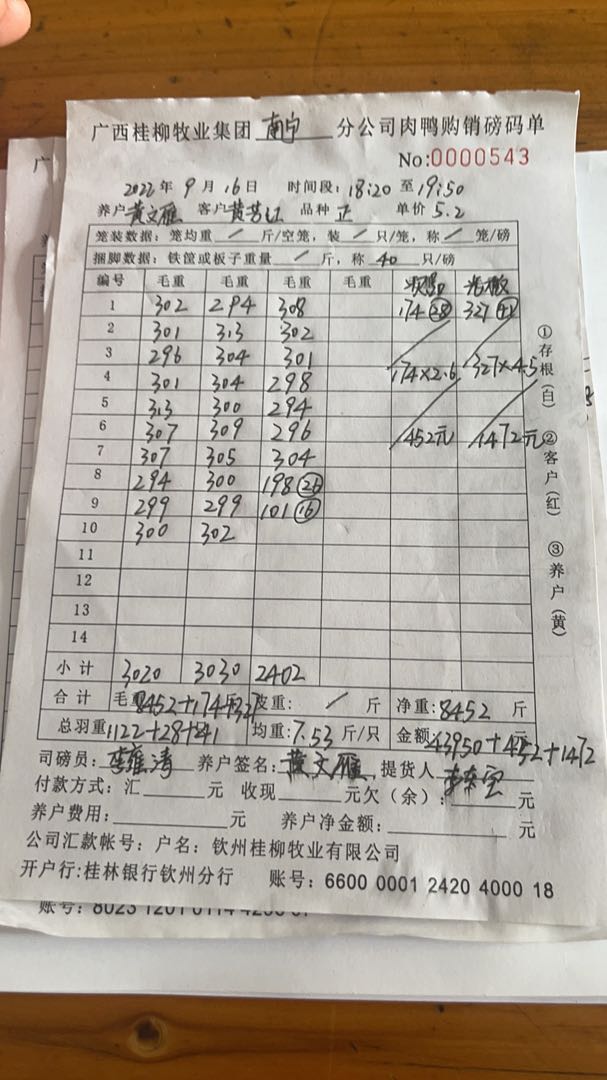 广西桂柳牧业集团 南宁 分公司肉鸭购销磅码单
No:0000543
2022年 9月 16日 时间段: 18:20 至 19:50
养户 黄文雁 客户 黄芳红 品种 正 单价 5.2
笼装数据: 笼均重 / 斤/空笼, 装 / 只/笼, 称 / 笼/磅
捆脚数据: 铁筐或板子重量 / 斤, 称 40 只/磅
编号 毛重 毛重 毛重 毛重
1 302 294 308 174 28 327 41
2 301 313 302
3 296 304 301 174×2.6 327×4.5
4 301 304 298
5 313 300 294
6 307 309 296 452元 1472元
7 307 305 304
8 294 300 198 26
9 299 299 101 16
10 300 302
11
12
13
14
小计 3020 3030 2402
合计 毛重 8452+174+327 皮重: / 斤 净重: 8452 斤
总羽重 1122+28+41 均重: 7.53 斤/只 金额: 43950+452+1472 元
司磅员: 养户签名: 黄文雁 提货人
付款方式: 汇 元 收现 元欠(余): 元
养户费用: 元 养户净金额: 元
公司汇款帐号: 户名: 钦州桂柳牧业有限公司
开户行:桂林银行钦州分行 账号: 6600 0001 2420 4000 18
①存根(白) ②客户(红) ③养户(黄)